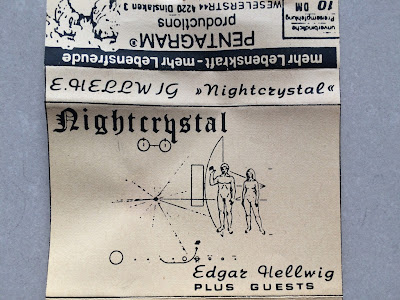 unverbindliche
Preisempfehlung
DM
10
WESELERSTR44 4220 Dinslaken
productions
PENTAGRAM®
mehr Lebenskraft - mehr Lebensfreude
E. HELLWIG »Nightcrystal«
Nightcrystal
Edgar Hellwig
PLUS GUESTS